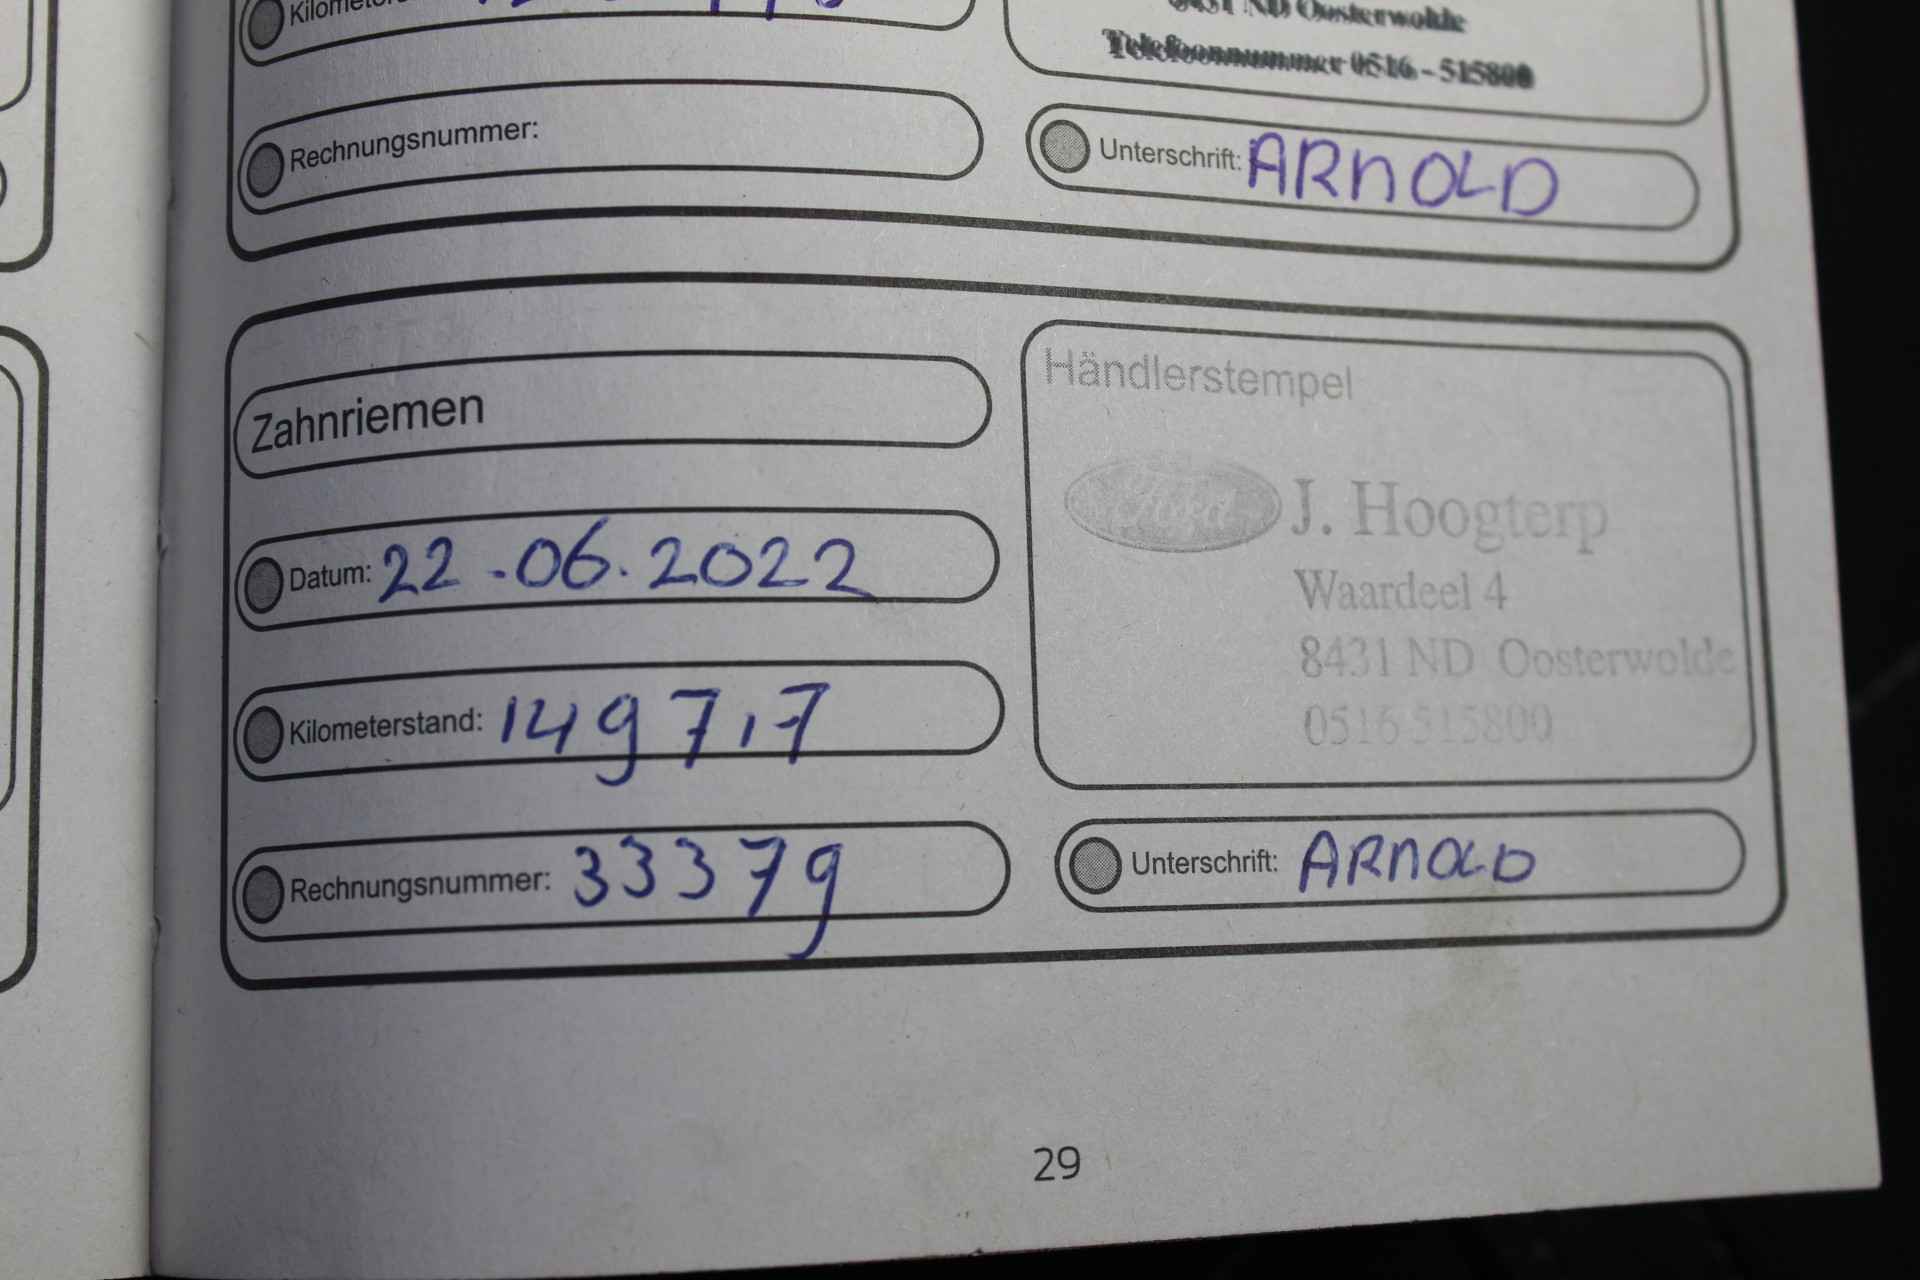 8431 ND Oosterwolde
Telefoonnummer 0516 - 515800
Rechnungsnummer:
Unterschrift: ARNOLD
Zahnriemen
Händlerstempel
Ford J. Hoogterp
Waardeel 4
8431 ND Oosterwolde
0516 515800
Datum: 22.06.2022
Kilometerstand: 149717
Rechnungsnummer: 33379
Unterschrift: ARNOLD
29